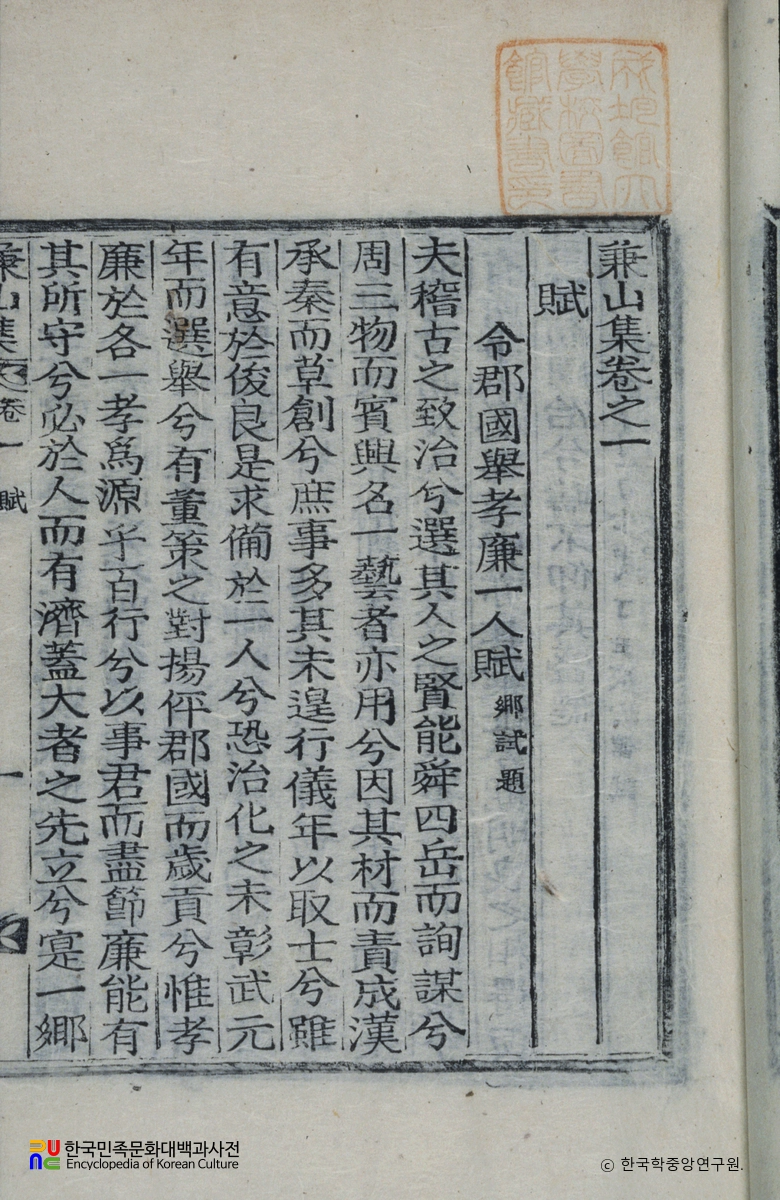 兼山集卷之一
賦
令郡國舉孝廉一人賦 鄉試題
夫稽古之致治兮選其人之賢能舜四岳而詢謀兮
周三物而賓興名一藝者亦用兮因其材而責成漢
承秦而草創兮庶事多其未遑行儀年以取士兮雖
有意於俊良是求備於一人兮恐治化之未彰武元
年而選舉兮有董策之對揚伻郡國而歲貢兮惟孝
廉於各一孝爲源乎百行兮以事君而盡節廉能有
其所守兮必於人而有濟蓋大者之先立兮寔一鄉
兼山集 卷一 賦 一
成均館大
學校圖書
館藏書印
한국민족문화대백과사전
Encyclopedia of Korean Culture
ⓒ 한국학중앙연구원.